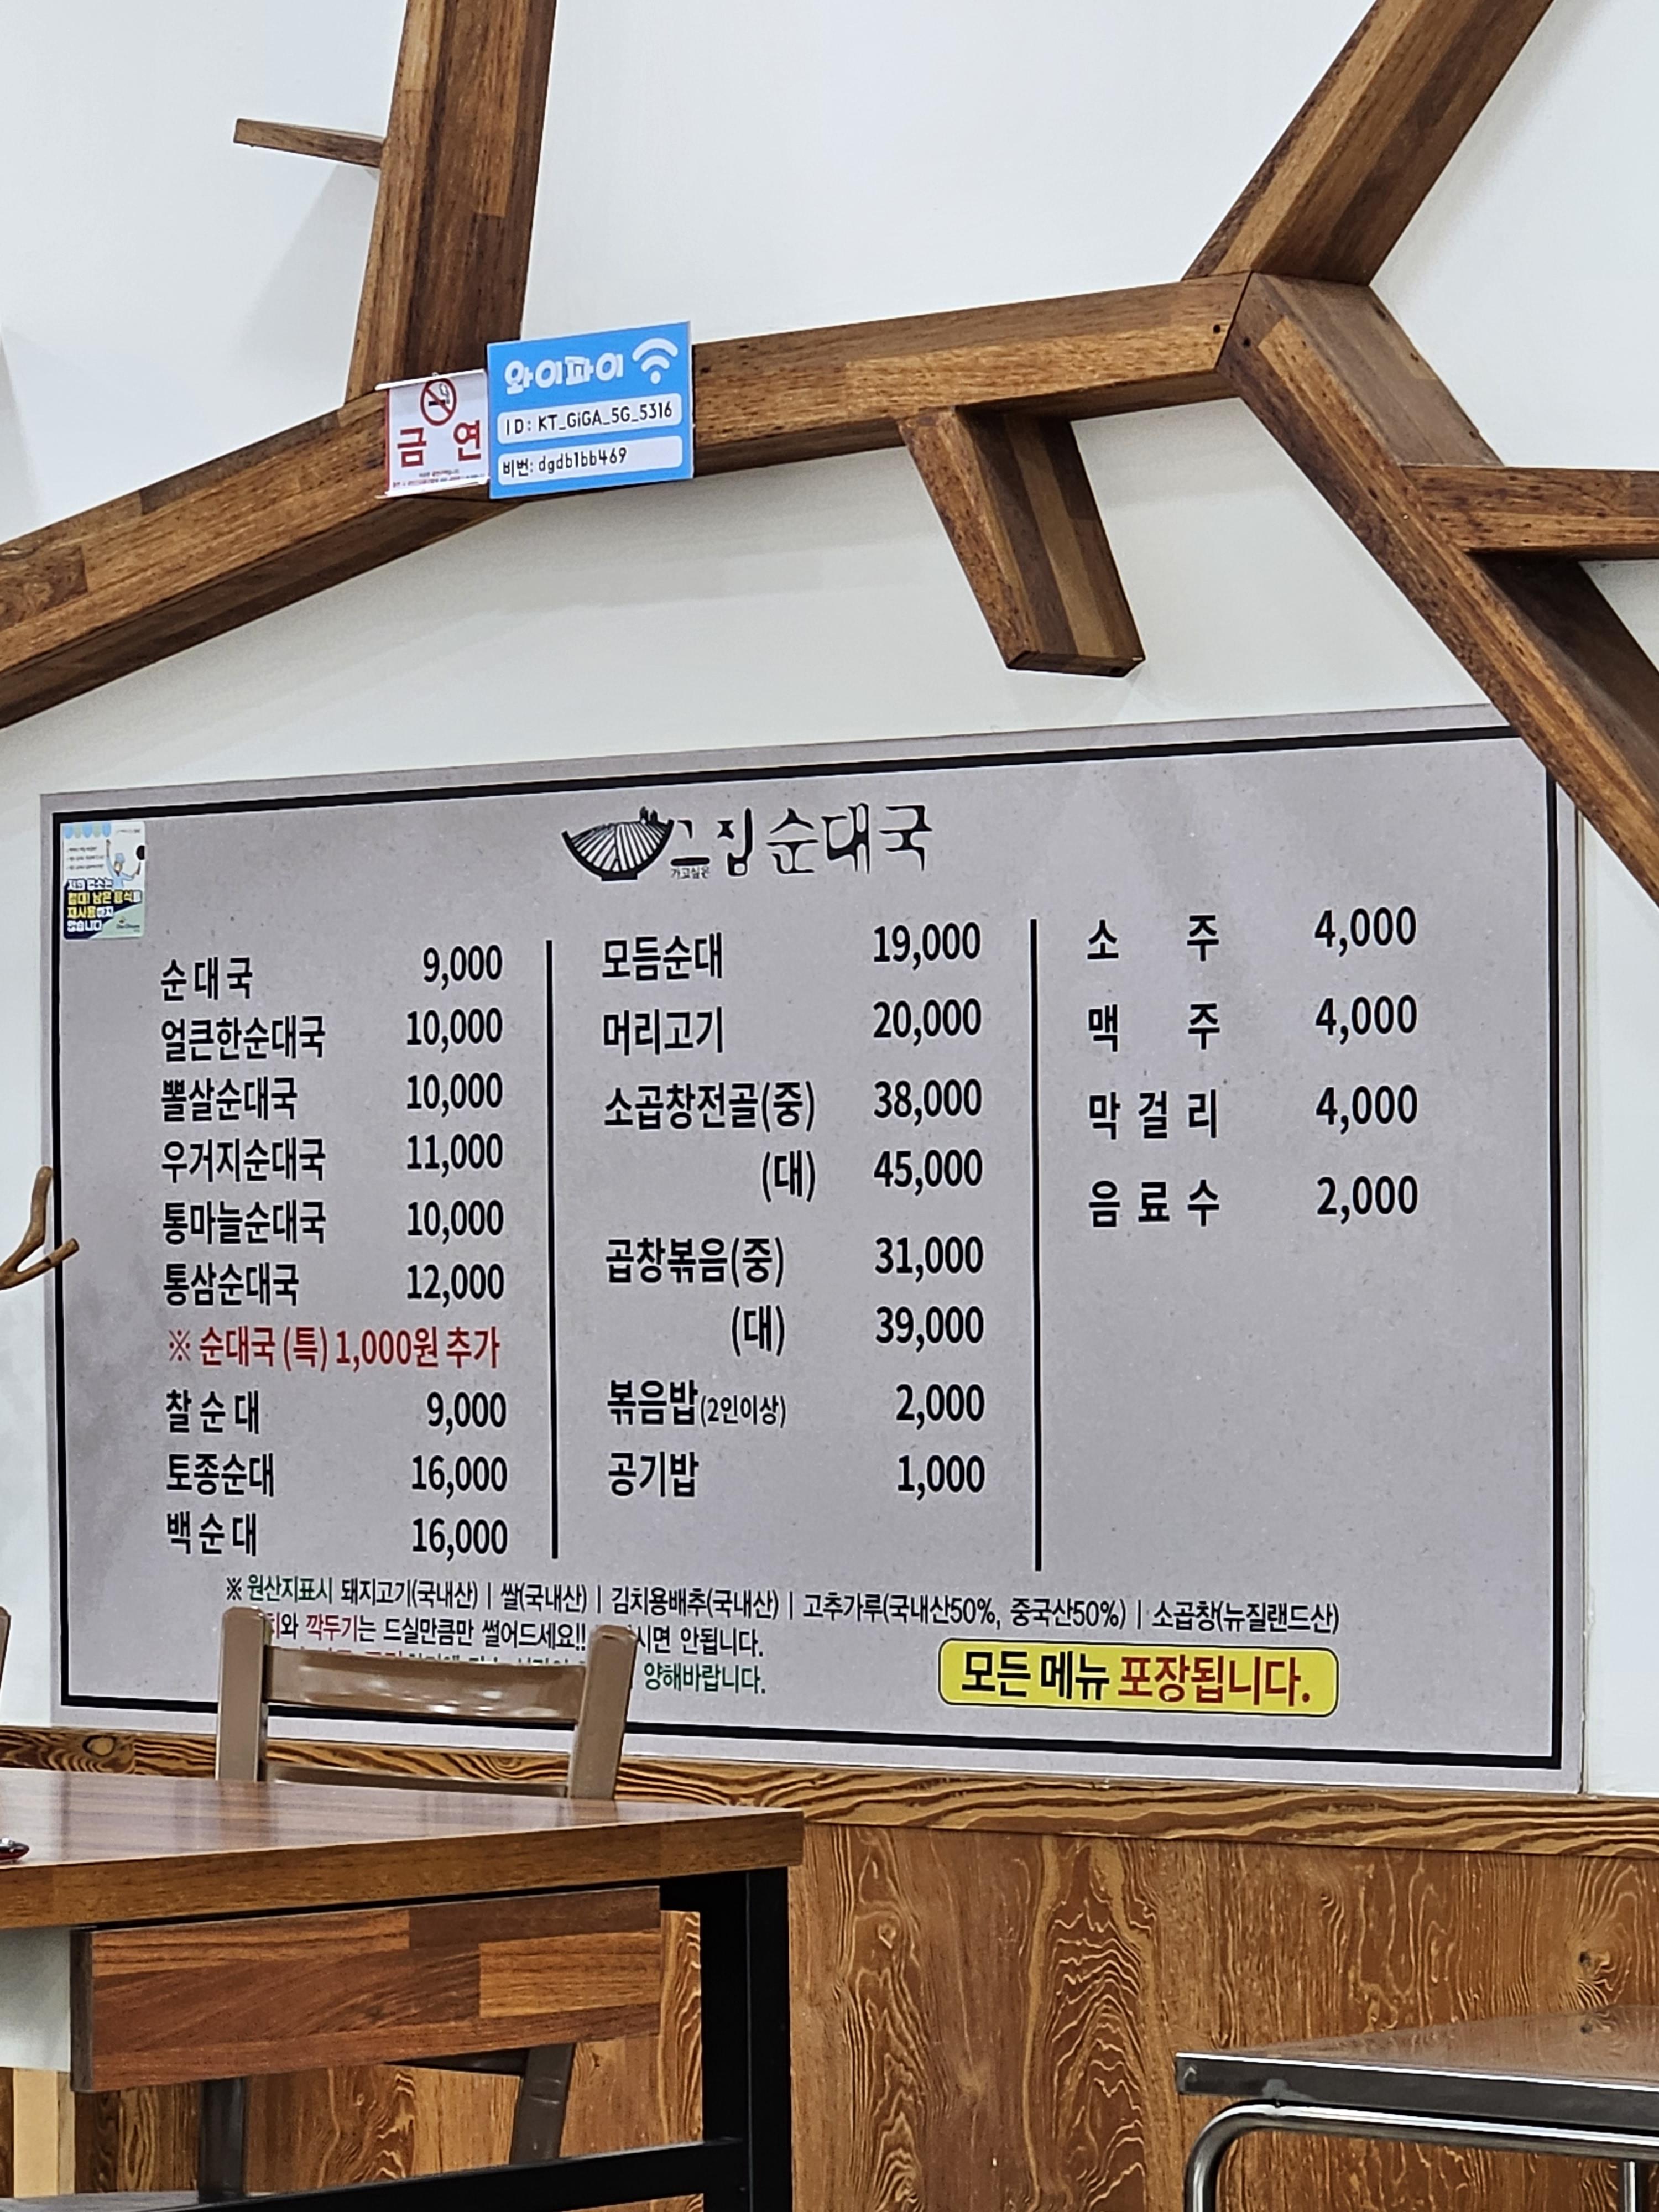 와이파이
ID: KT_GiGA_5G_5316
비번: dgdb1bb469
금 연
그집순대국
가고싶은
지금 업소는
절대! 남은 음식을
재사용하지
않습니다
순대국 9,000
얼큰한순대국 10,000
뽈살순대국 10,000
우거지순대국 11,000
통마늘순대국 10,000
통삼순대국 12,000
※ 순대국 (특) 1,000원 추가
찰순대 9,000
토종순대 16,000
백순대 16,000
모듬순대 19,000
머리고기 20,000
소곱창전골(중) 38,000
(대) 45,000
곱창볶음(중) 31,000
(대) 39,000
볶음밥(2인이상) 2,000
공기밥 1,000
소 주 4,000
맥 주 4,000
막걸리 4,000
음료수 2,000
※ 원산지표시 돼지고기(국내산) | 쌀(국내산) | 김치용배추(국내산) | 고추가루(국내산50%, 중국산50%) | 소곱창(뉴질랜드산)
와 깍두기는 드실만큼만 썰어드세요!! 시면 안됩니다.
양해바랍니다.
모든 메뉴 포장됩니다.